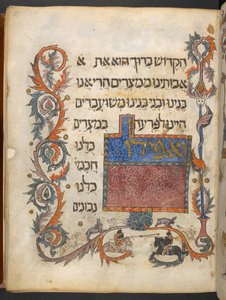 הקדוש ברוך הוא את א
אבותינו ממצרים הרי אנו
בנינו ובני בנינו משועבדים
היינו לפרעה במצרים
אפילו כלנו
חכמי
כלנו
נבונים